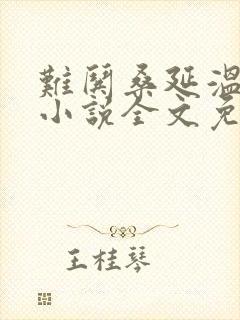 難鬨桑延溫
小說全文免
王桂琴